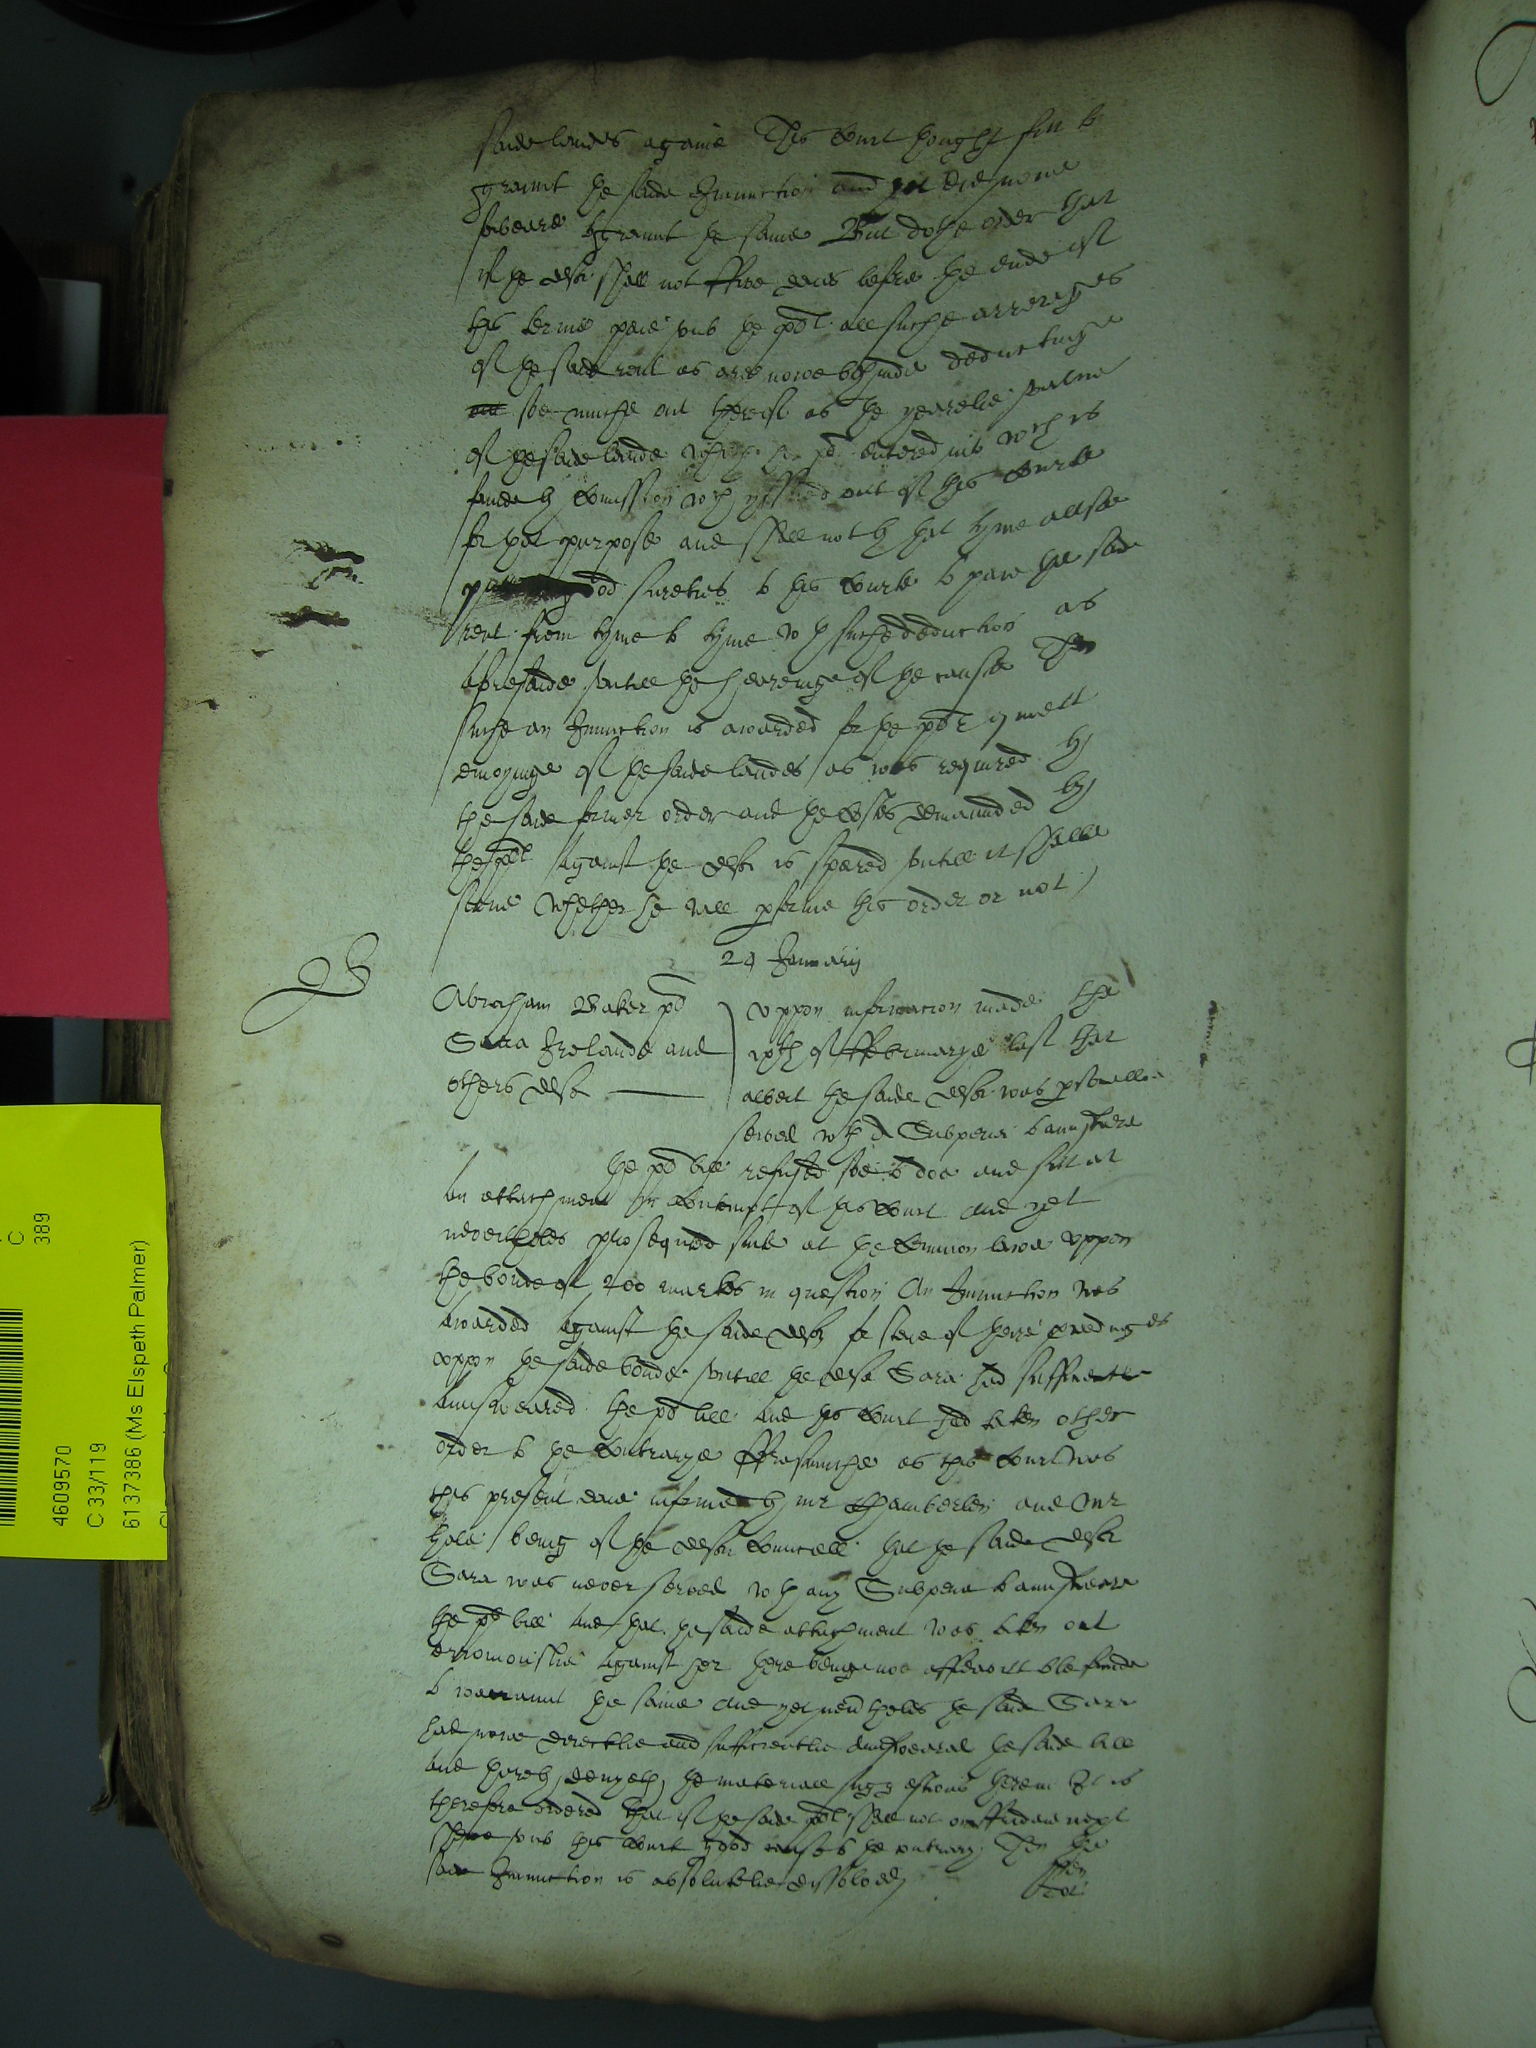 saide landes againe This Court thought fitt to
graunt the saide Iniunction and yet did none
forbeare to graunt the same But dothe order that
if the deft shall not ffive daies before the ende of
this terme paie vnto the plt all suche arrerages
of the saide rent as are nowe behinde deductinge
soe muche out thereof as the yearelie value
of the saide lande the pl entered into wch is
founde by Comission wch yssued out of this Courte
for that purpose and shall not by that tyme allsoe
good sureties to this Courte to paie the said
rent from tyme to tyme wth suche deduction as
aforesaide vntill the hearinge of the cause Then
suche an Iniunction is awarded for the plt quiett
enioyinge of the saide landes as was required by
the saide former order and the Costes demaunded by
the plt against the deft is spared vntill it shalbe
seene whether he will performe this order or not
24 January
Abraham Baker pl
Sara Irelande and
others deft
vppon informacion made the
xth of ffebruarye last that
albeit the saide deft was personallie
served wth a Subpena to aunsweare
the pl bill refused soe to doe and satt at
an attachment for Contempt of this Court and yet
neverthelesse prosequted suite at the Common lawe vppon
the bonde of 200 markes in question An Iniunction was
awarded against the saide deft for staie of there procedinges
vppon the saide bonde vntill the deft Sara had sufficientlie
aunsweared the pl bill and this Court had taken other
order to the Contrarye fforasmuche as this Court was
this present daie informed by mr Chamberlen and mr
hele being of the deft Councell that the saide deft
Sara was never served wth any Subpena to aunsweare
the pl bill and that the saide attachment was taken out
erroniouslie against her there beinge noe affidavitt to be founde
to warraunt the same and yet nevertheles the saide Sara
hath nowe directlie and sufficientlie aunsweared the saide bill
and thereby denyeth the materiall suggestions therein It is
therefore ordered that if the saide plt shall not on ffridaie next
shewe vnto this Court good cause to the contrary Then the
saide Iniunction is absolutelie dissolved
4609570
C 33/119
6137386 (Ms Elspeth Palmer)
C
389